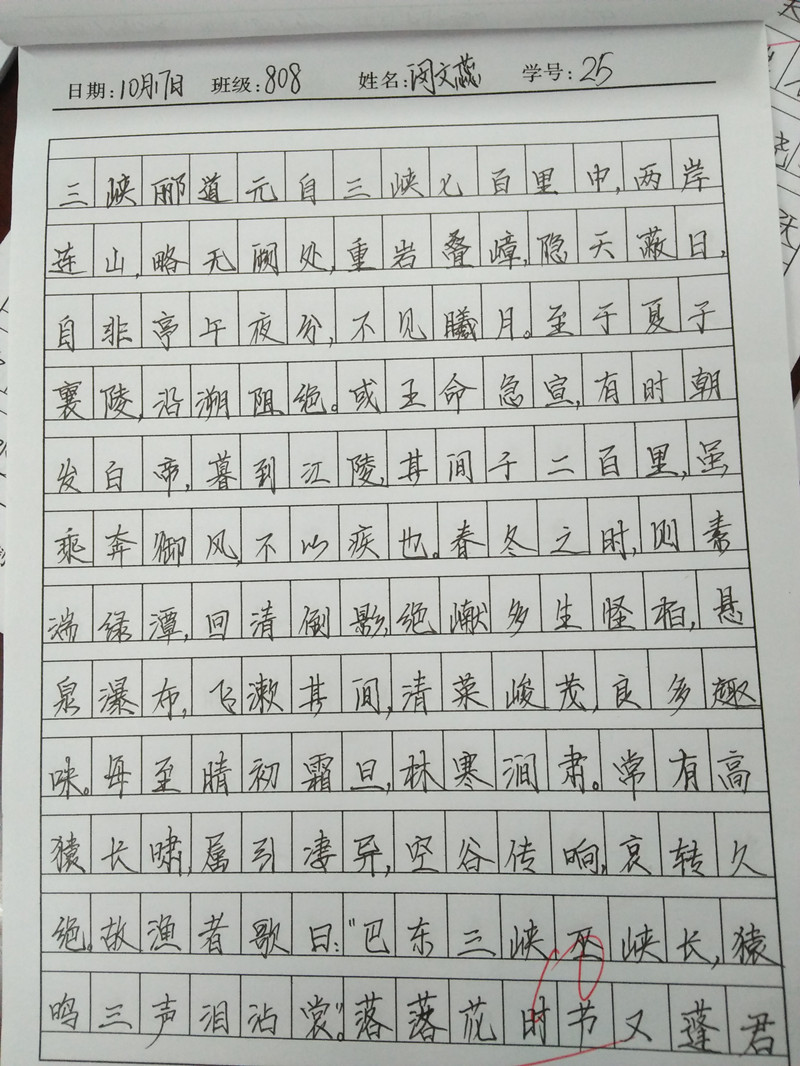 日期:10月17日 班级:808 姓名:闵文蕊 学号:25
三峡郦道元自三峡七百里中,两岸
连山,略无阙处,重岩叠嶂,隐天蔽日,
自非亭午夜分,不见曦月。至于夏子
襄陵,沿溯阻绝。或王命急宣,有时朝
发白帝,暮到江陵,其间于二百里,虽
乘奔御风,不以疾也。春冬之时,则素
湍绿潭,回清倒影,绝巘多生怪柏,悬
泉瀑布,飞漱其间,清菜峻茂,良多趣
味。每至晴初霜旦,林寒涧肃。常有高
猿长啸,属引凄异,空谷传响,哀转久
绝。故渔者歌曰:"巴东三峡巫峡长,猿
鸣三声泪沾裳"。落落花时节又蓬君